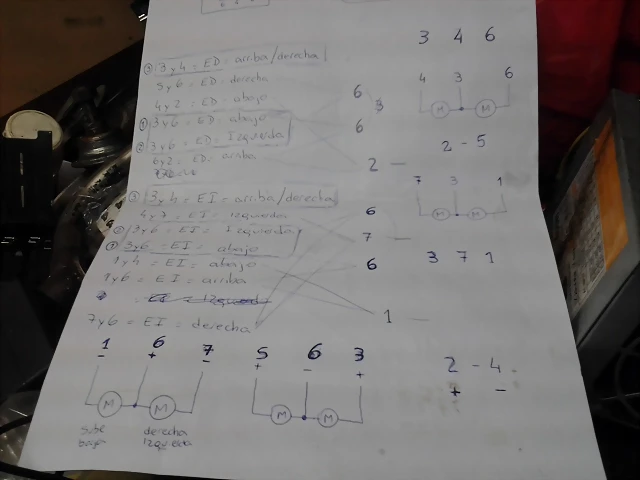 3 y 4 = ED = arriba/derecha
5 y 6 = ED = derecha
4 y 2 = ED = abajo
3 y 6 = ED = abajo
3 y 6 = ED = Izquierda
6 y 2 = ED = arriba
3 y 4 = EI = arriba/derecha
4 y 7 = EI = izquierda
3 y 6 = EI = Izquierda
3 y 6 = EI = abajo
1 y 4 = EI = abajo
1 y 6 = EI = arriba
7 y 6 = EI = derecha
6
3
6
2 —
6
7 —
6
1 —
3 4 6
4 3 6
M M
2 - 5
7 3 1
M M
3 7 1
1 6 7 5 6 3
- + - + - +
M M M M
sube derecha
baja Izquierda
2 - 4
+ -